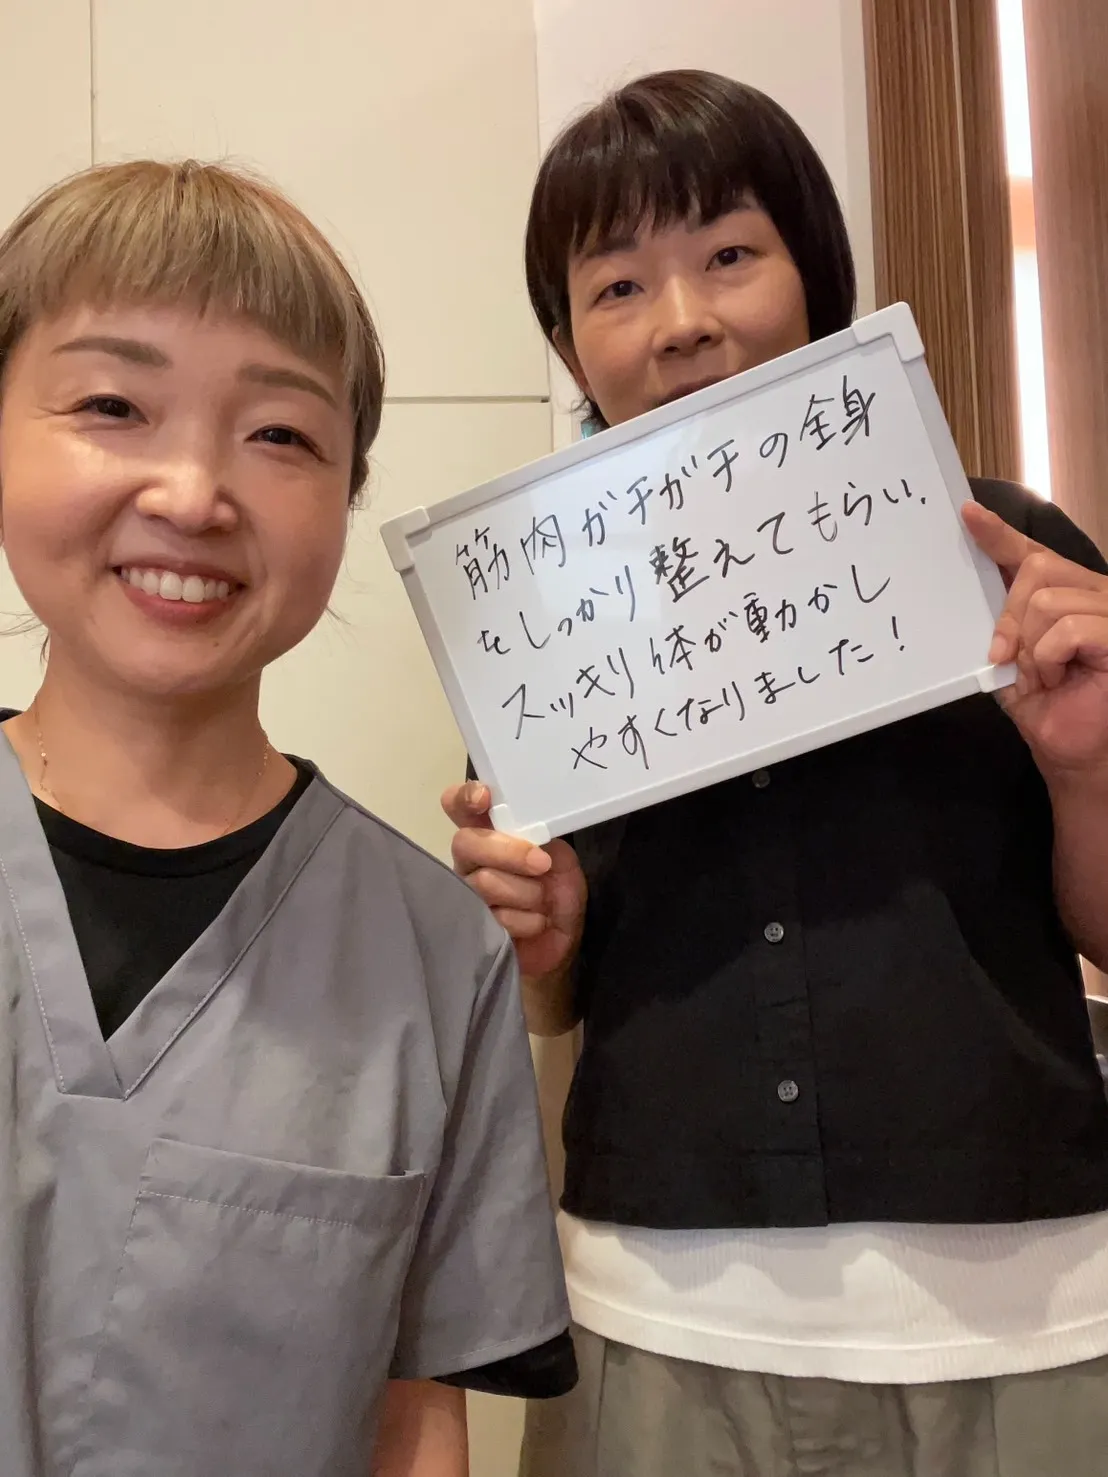 筋肉ガチガチの全身
をしっかり整えてもらい、
スッキリ体が動かし
やすくなりました!